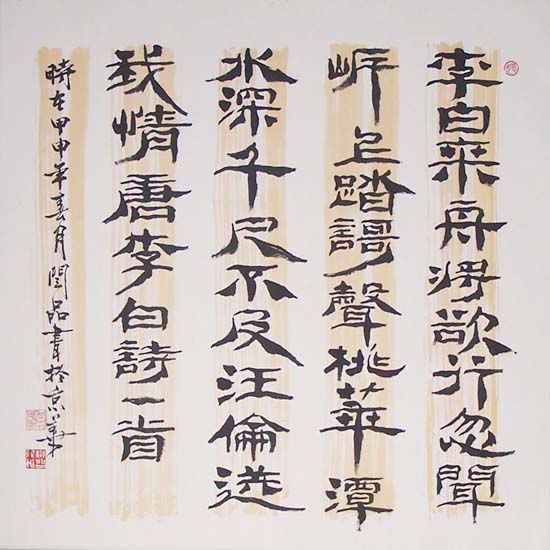 李白乘舟將欲行忽聞
岸上踏謌聲桃華潭
水深千尺不及汪倫送
我情唐李白詩一首
時在甲申年春月閆品書於京華